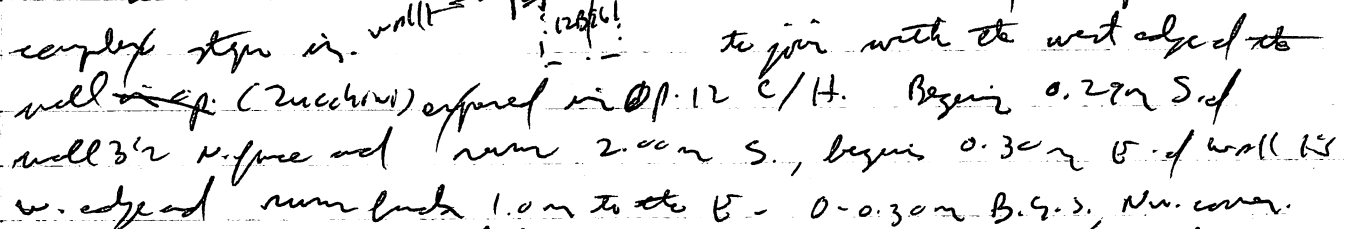 complex steps in. wall to join with the west edge of the
wall in op. (Zucchini) exposed in Op. 12 C/H. Begins 0.29m S. of
wall 3's N. face and runs 2.00m S., begins 0.30m E. of wall 15's
w. edge and runs back 1.0m to the E - 0-0.30m B.G.S., NW. corner.